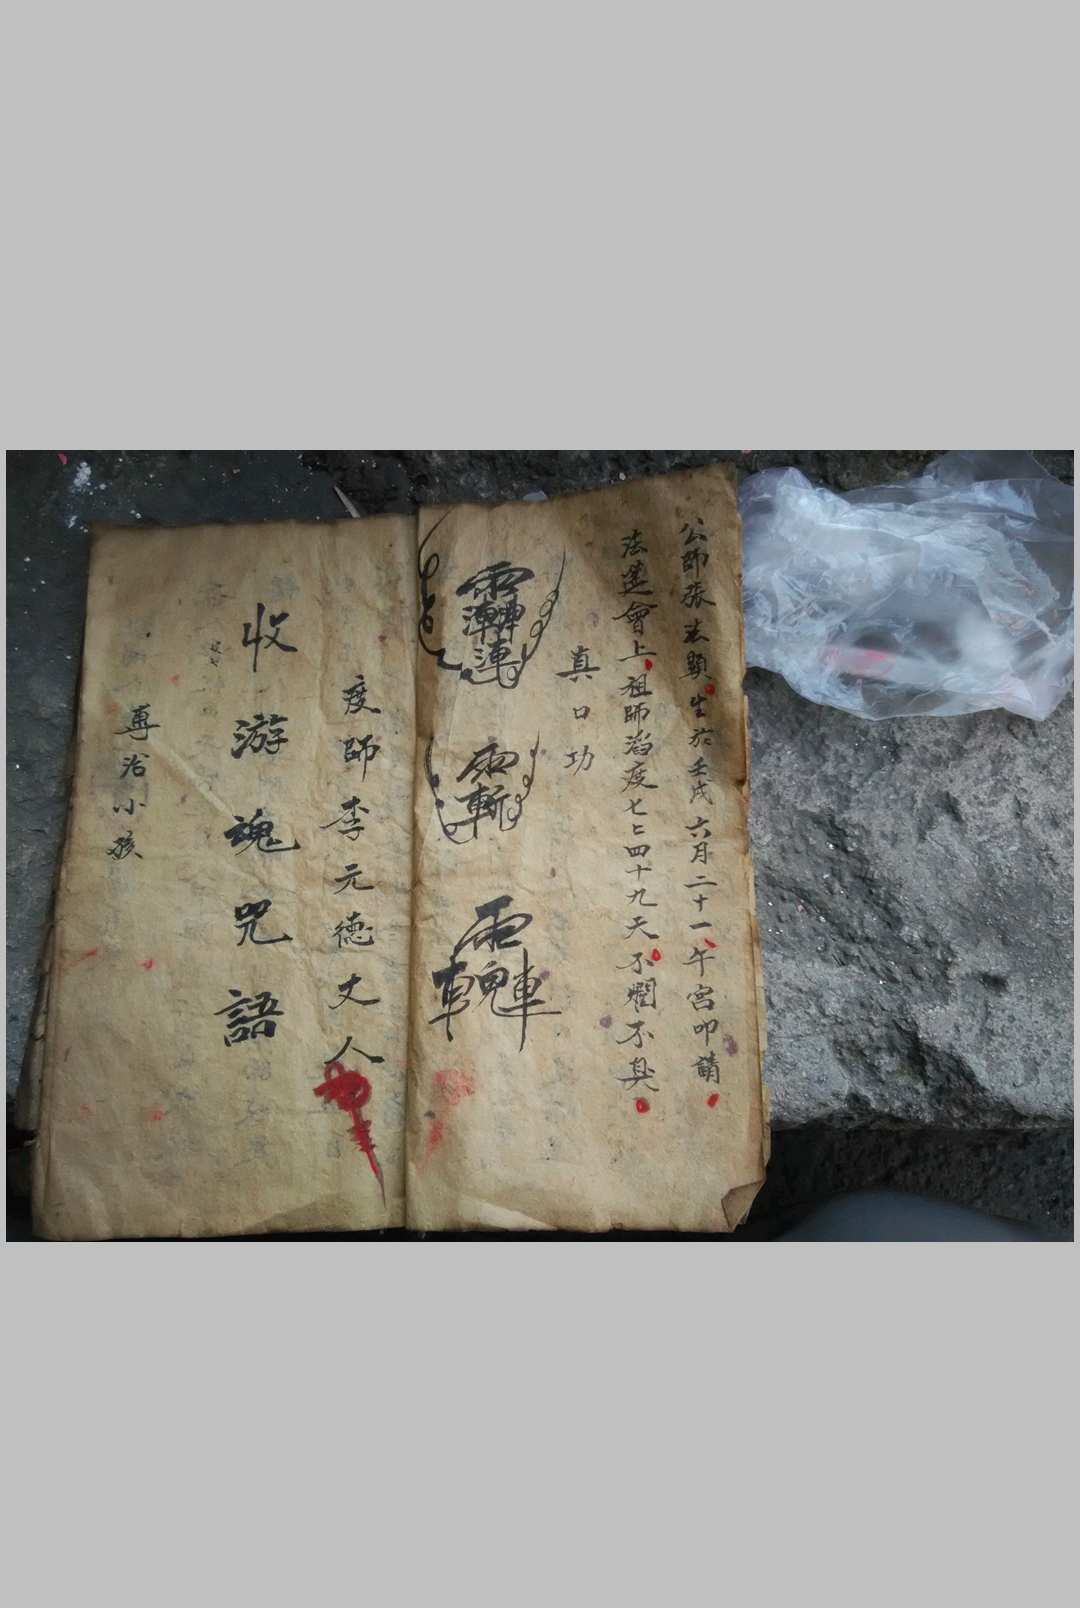 公師張法顯生於壬戌六月二十一午宮叩請
法蓮會上祖師滔疫七七四十九天不爛不臭
真口功
度師李元德丈人
收游魂咒語
專治小孩